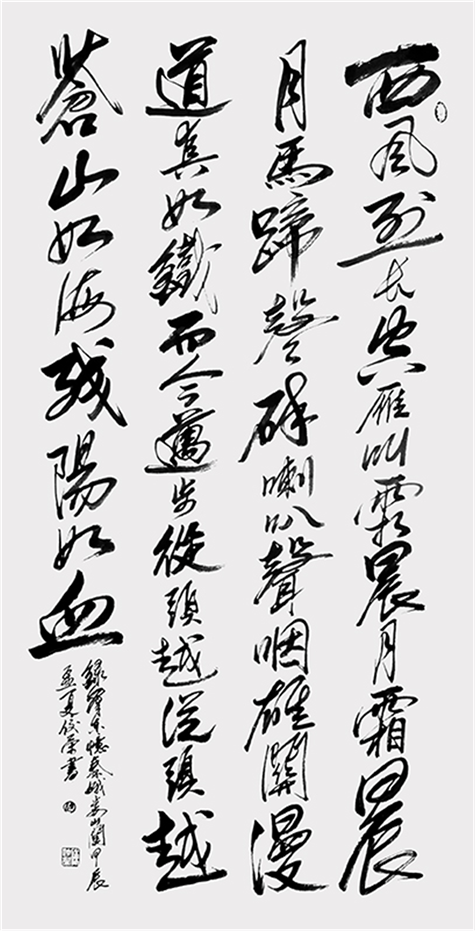 西风烈长空雁叫霜晨月霜晨
月馬蹄聲碎喇叭聲咽雄関漫
道真如鐵而今邁步從頭越從頭越
蒼山如海残陽如血
録東憶秦娥娄山関甲辰
孟夏俊荣書